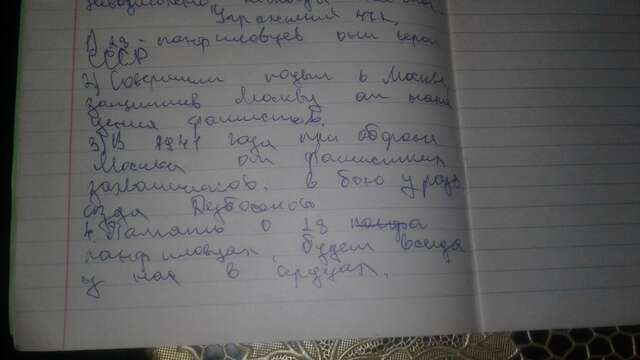 Упражнение 471.
1) 28 - панфиловцев они герои
СССР
2) Совершили подвиг в Москве,
защитив Москву от напа
дения фашистов.
3) В 1941 года при обороне
Москвы от фашистких
захватчиков. в бою у разъ
езда Дубосеково
4. Память о 28 панфи
панфиловцах, будет всегда
у нас в сердцах.